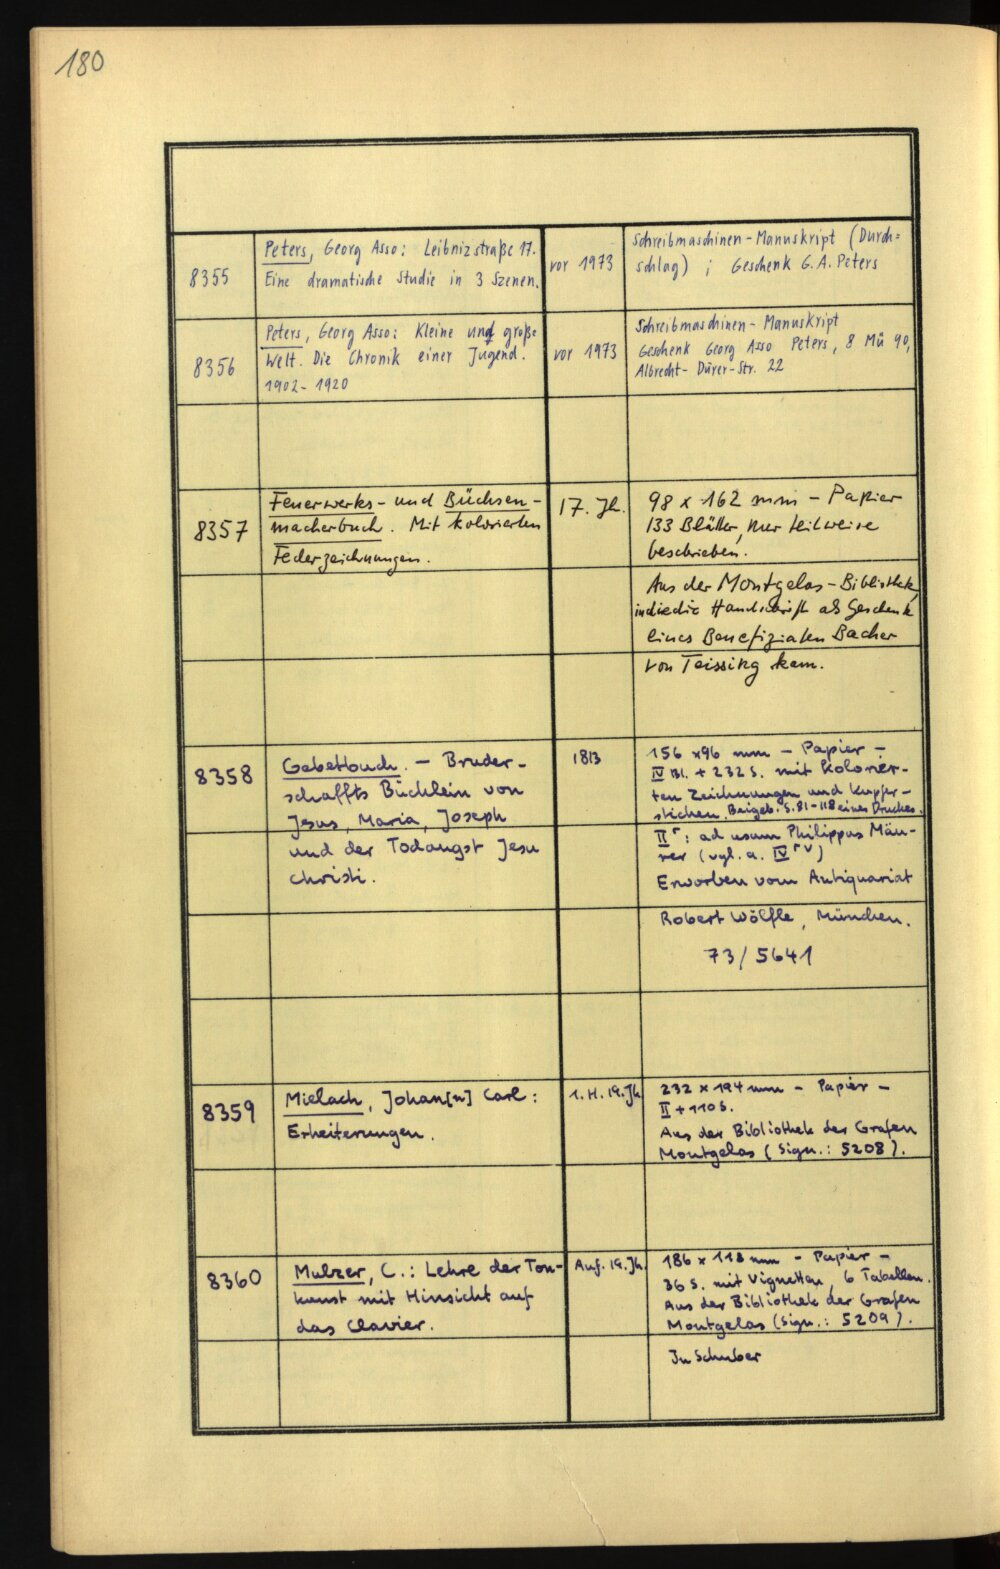 180
8355
Peters, Georg Asso: Leibnizstraße 17.
Eine dramatische Studie in 3 Szenen.
vor 1973
Schreibmaschinen-Manuskript (Durch=
schlag) ; Geschenk G. A. Peters
8356
Peters, Georg Asso: Kleine und große
Welt. Die Chronik einer Jugend.
1902-1920
vor 1973
Schreibmaschinen-Manuskript
Geschenk Georg Asso Peters, 8 Mü 90,
Albrecht-Dürer-Str. 22
8357
Feuerwerks- und Büchsen-
macherbuch. Mit kolorierten
Federzeichnungen.
17. Jh.
98 x 162 mm - Papier
133 Blätter, nur teilweise
beschrieben.
Aus der Montgelas-Bibliothek,
in die die Handschrift als Geschenk
eines Benefiziaten Bacher
von Teissing kam.
8358
Gebetbuch. - Bruder-
schaffts Büchlein von
Jesus, Maria, Joseph
und der Todangst Jesu
Christi.
1813
156 x 96 mm - Papier -
IV Bl. + 232 S. mit kolorier-
ten Zeichnungen und Kupfer-
stichen. Beigeb. S. 81-118 eines Druckes.
II r: ad usum Philippus Män-
rer (vgl. a. IV r v)
Erworben vom Antiquariat
Robert Wölfle, München.
73/5641
8359
Mielach, Johan[n] Carl:
Erheiterungen.
1. H. 19. Jh.
232 x 194 mm - Papier -
II + 110 S.
Aus der Bibliothek der Grafen
Montgelas (Sign.: 5208).
8360
Mulzer, C.: Lehre der Ton-
kunst mit Hinsicht auf
das Clavier.
Anf. 19. Jh.
186 x 118 mm - Papier -
36 S. mit Vignetten, 6 Tabellen.
Aus der Bibliothek der Grafen
Montgelas (Sign.: 5209).
In Schuber